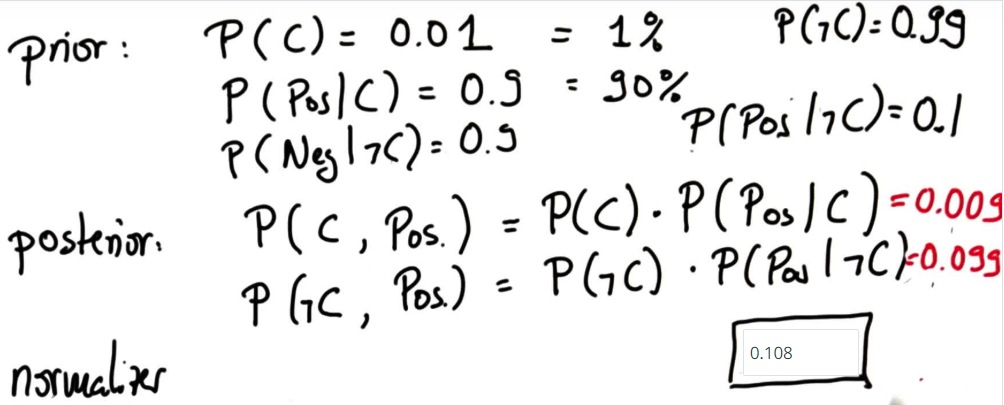 prior: P(C) = 0.01 = 1% P(¬C) = 0.99
P(Pos|C) = 0.9 = 90% P(Pos|¬C) = 0.1
P(Neg|¬C) = 0.9
posterior: P(C, Pos.) = P(C) · P(Pos|C) = 0.009
P(¬C, Pos.) = P(¬C) · P(Pos|¬C) = 0.099
normalizer 0.108